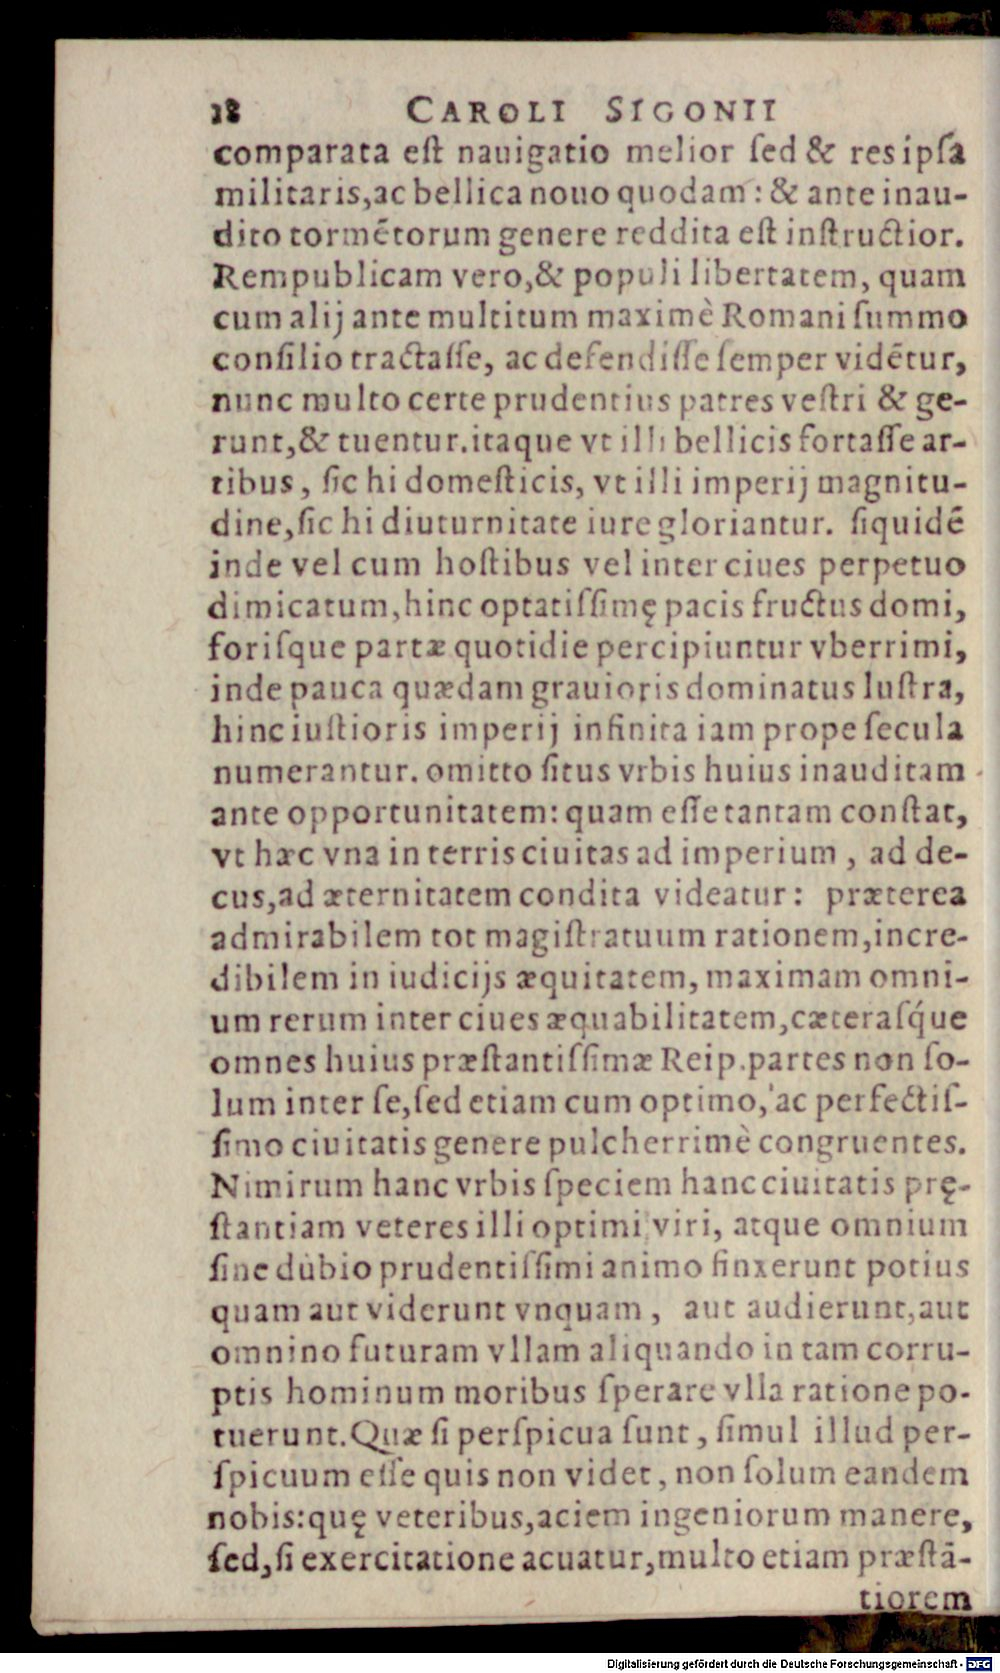 18 CAROLI SIGONII
comparata eſt nauigatio melior ſed & res ipſa
militaris,ac bellica nouo quodam : & ante inau-
dito tormētorum genere reddita eſt inſtructior.
Rempublicam vero,& populi libertatem, quam
cum alij ante multi tum maximè Romani ſummo
conſilio tractaſſe, ac defendiſſe ſemper vidētur,
nunc multo certe prudentius patres veſtri & ge-
runt,& tuentur.itaque vt illi bellicis fortaſſe ar-
tibus, ſic hi domeſticis, vt illi imperij magnitu-
dine,ſic hi diuturnitate iure gloriantur. ſiquidē
inde vel cum hoſtibus vel inter ciues perpetuo
dimicatum,hinc optatiſſimę pacis fructus domi,
foriſque partæ quotidie percipiuntur vberrimi,
inde pauca quædam grauioris dominatus luſtra,
hinc iuſtioris imperij infinita iam prope ſecula
numerantur. omitto ſitus vrbis huius inauditam
ante opportunitatem: quam eſſe tantam conſtat,
vt hæc vna in terris ciuitas ad imperium , ad de-
cus,ad æternitatem condita videatur: præterea
admirabilem tot magiſtratuum rationem,incre-
dibilem in iudicijs æquitatem, maximam omni-
um rerum inter ciues æquabilitatem,cæteraſq́ue
omnes huius præſtantiſſimæ Reip.partes non ſo-
lum inter ſe,ſed etiam cum optimo, ac perfectiſ-
ſimo ciuitatis genere pulcherrimè congruentes.
Nimirum hanc vrbis ſpeciem hanc ciuitatis prę-
ſtantiam veteres illi optimi viri, atque omnium
ſine dubio prudentiſſimi animo finxerunt potius
quam aut viderunt vnquam , aut audierunt,aut
omnino futuram vllam aliquando in tam corru-
ptis hominum moribus ſperare vlla ratione po-
tuerunt.Quæ ſi perſpicua ſunt , ſimul illud per-
ſpicuum eſſe quis non videt, non ſolum eandem
nobis:quę veteribus,aciem ingeniorum manere,
ſed,ſi exercitatione acuatur,multo etiam præſtā-
tiorem
Digitalisierung gefördert durch die Deutsche Forschungsgemeinschaft - DFG